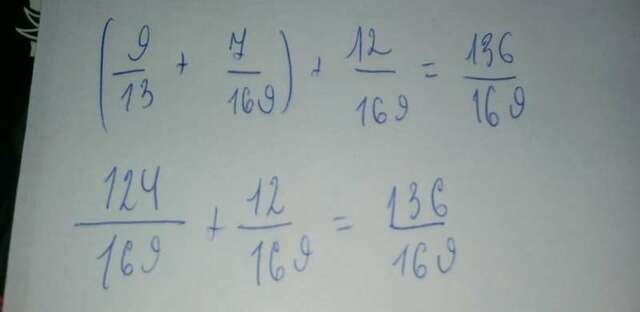 (9/13 + 7/169) + 12/169 = 136/169
124/169 + 12/169 = 136/169